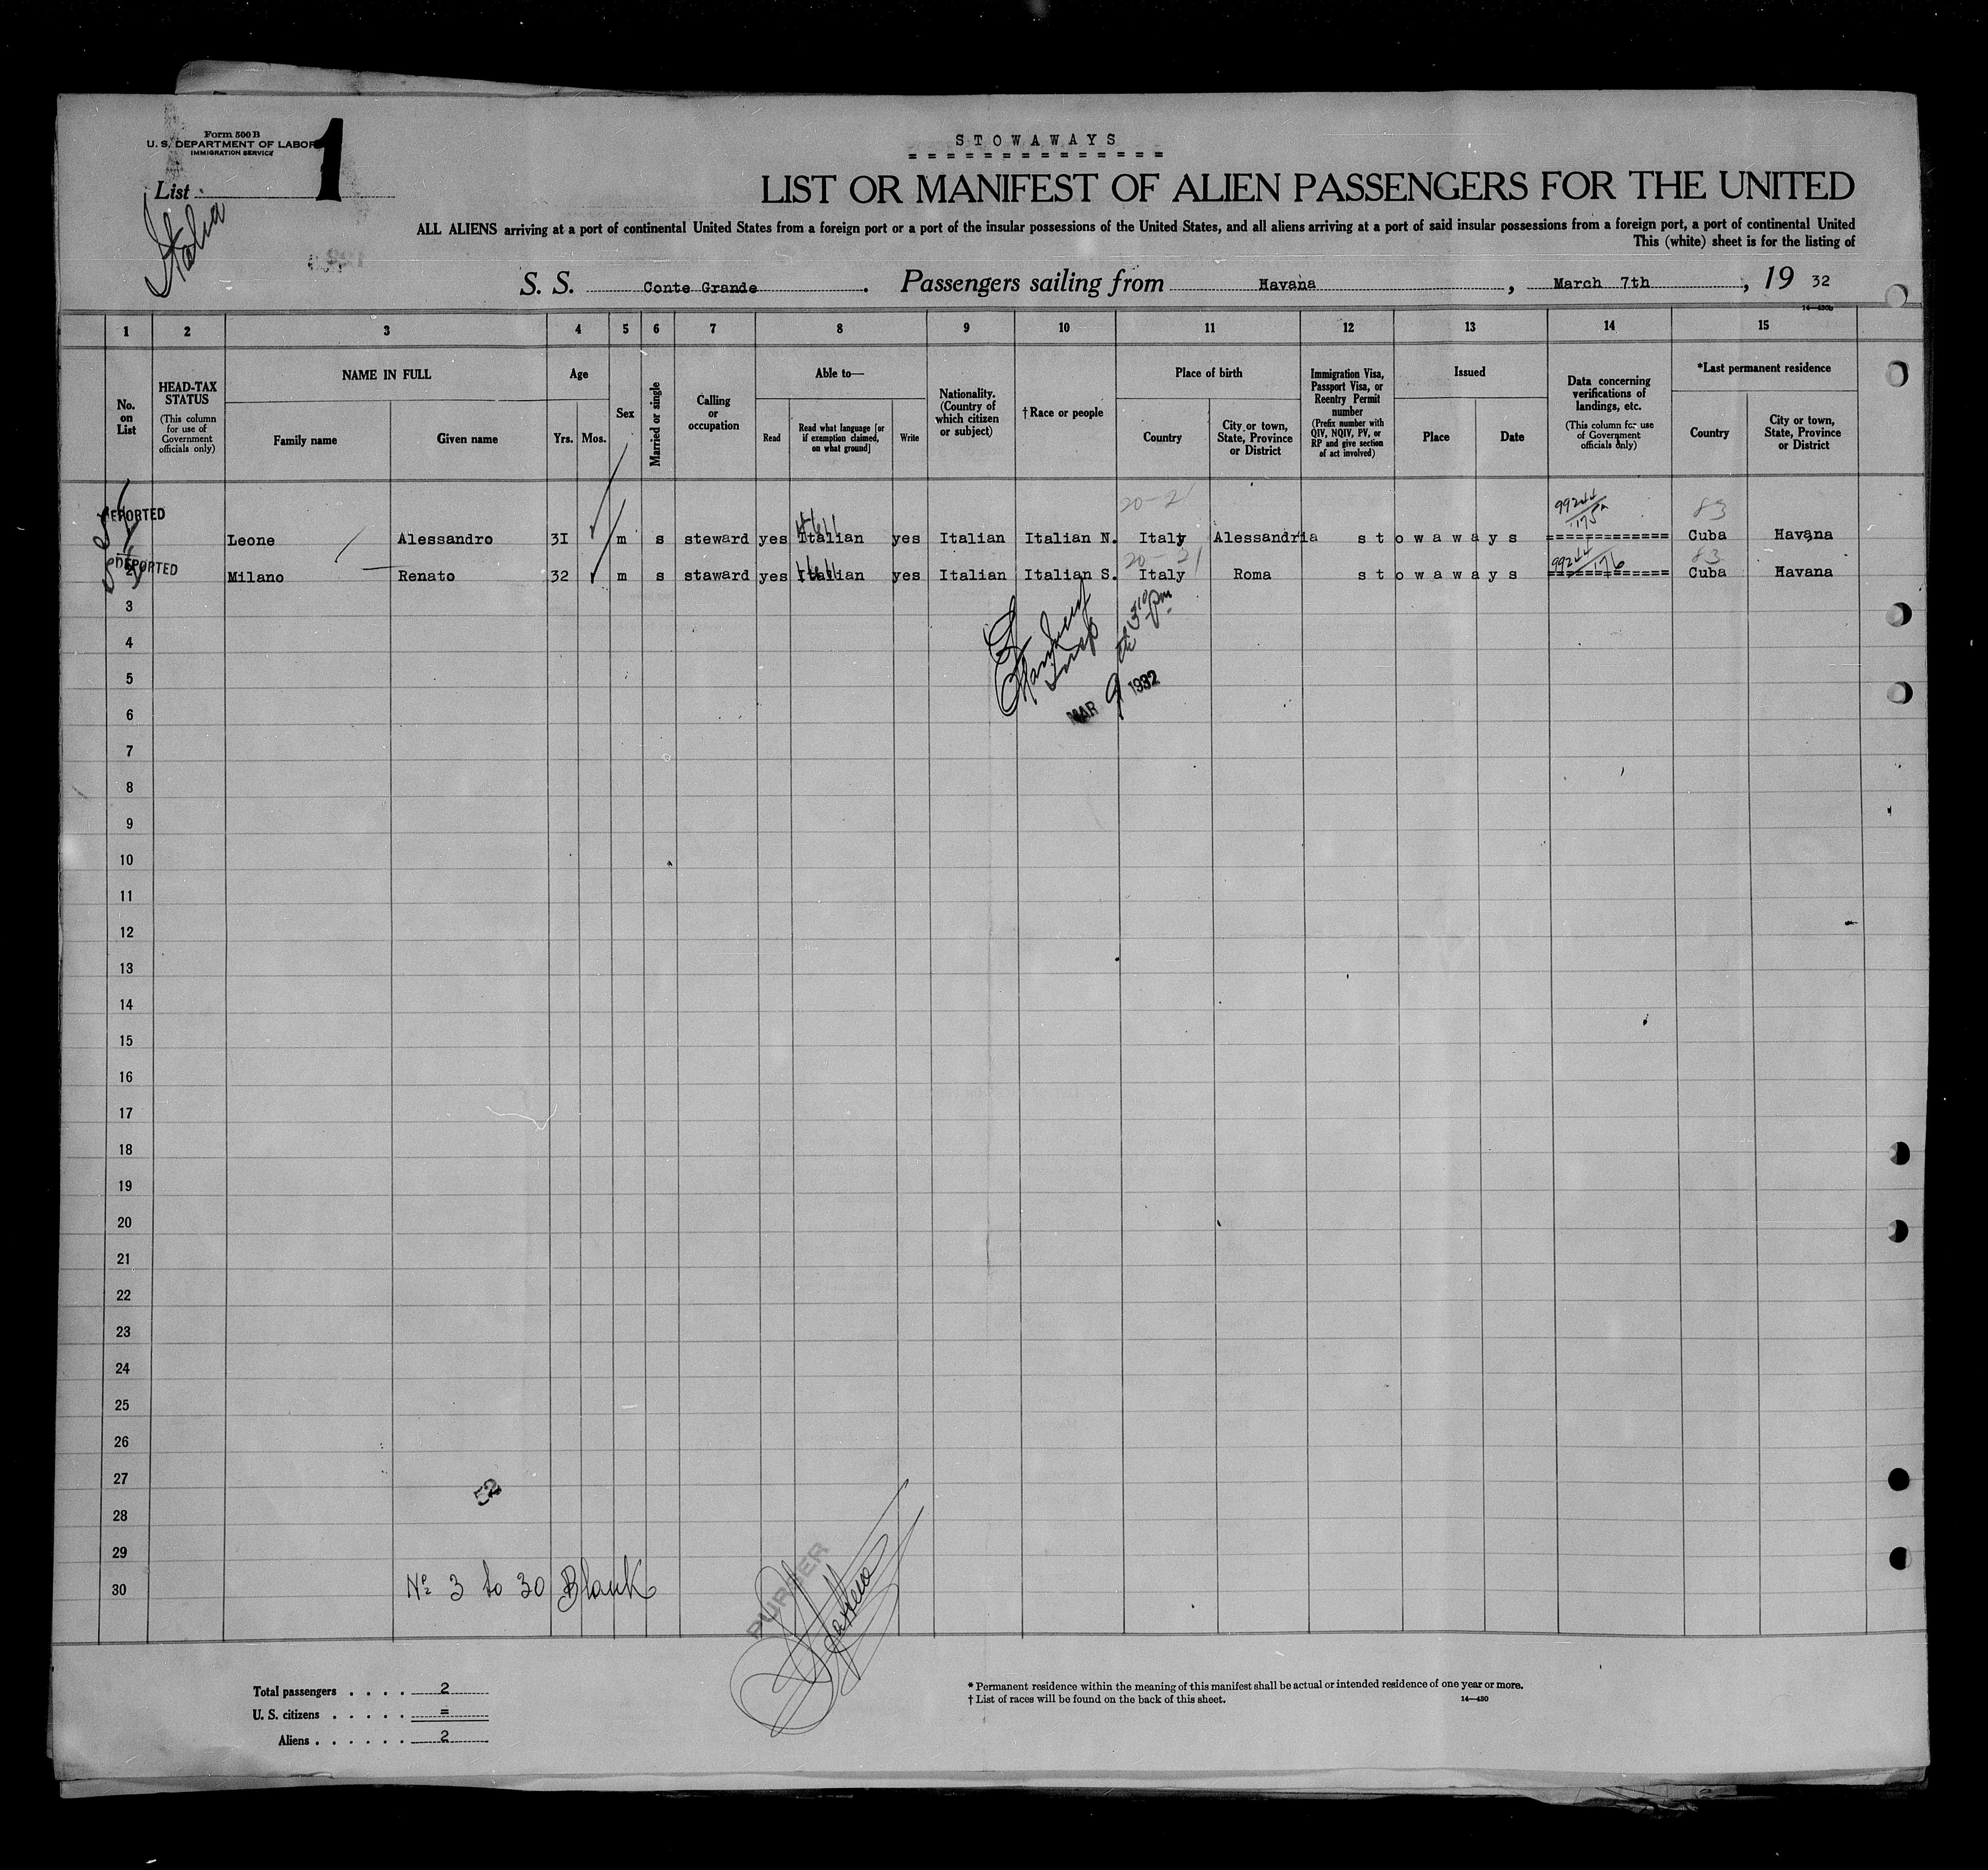 Form 500 B
U. S. DEPARTMENT OF LABOR
IMMIGRATION SERVICE
1
List
Italia
STOWAWAYS
LIST OR MANIFEST OF ALIEN PASSENGERS FOR THE UNITED
ALL ALIENS arriving at a port of continental United States from a foreign port or a port of the insular possessions of the United States, and all aliens arriving at a port of said insular possessions from a foreign port, a port of continental United
This (white) sheet is for the listing of
S. S. Conte Grande. Passengers sailing from Havana, March 7th, 19 32
14—430b
1 2 3 4 5 6 7 8 9 10 11 12 13 14 15
No. on List
HEAD-TAX STATUS
(This column for use of Government officials only)
NAME IN FULL
Family name
Given name
Age
Yrs. Mos.
Sex
Married or single
Calling or occupation
Able to—
Read
Read what language [or if exemption claimed, on what ground]
Write
Nationality. (Country of which citizen or subject)
†Race or people
Place of birth
Country
City or town, State, Province or District
Immigration Visa, Passport Visa, or Reentry Permit number
(Prefix number with QIV, NQIV, PV, or RP and give section of act involved)
Issued
Place
Date
Data concerning verifications of landings, etc.
(This column for use of Government officials only)
*Last permanent residence
Country
City or town, State, Province or District
20-2 99244/175 83
DEPORTED
Leone Alessandro 3I m s steward yes Italian yes Italian Italian N. Italy Alessandria stowaways ============= Cuba Havana
20-21 99244/176 83
DEPORTED
2 Milano Renato 32 m s staward yes Italian yes Italian Italian S. Italy Roma stowaways ============= Cuba Havana
3
4
5
MAR 9 1932
6
7
8
9
10
11
12
13
14
15
16
17
18
19
20
21
22
23
24
25
26
27
52
28
29
30 Nº 3 to 30 Blank
PURSER
Total passengers . . . . 2
U. S. citizens . . . . . =
Aliens . . . . . . 2
* Permanent residence within the meaning of this manifest shall be actual or intended residence of one year or more.
† List of races will be found on the back of this sheet.
14—430